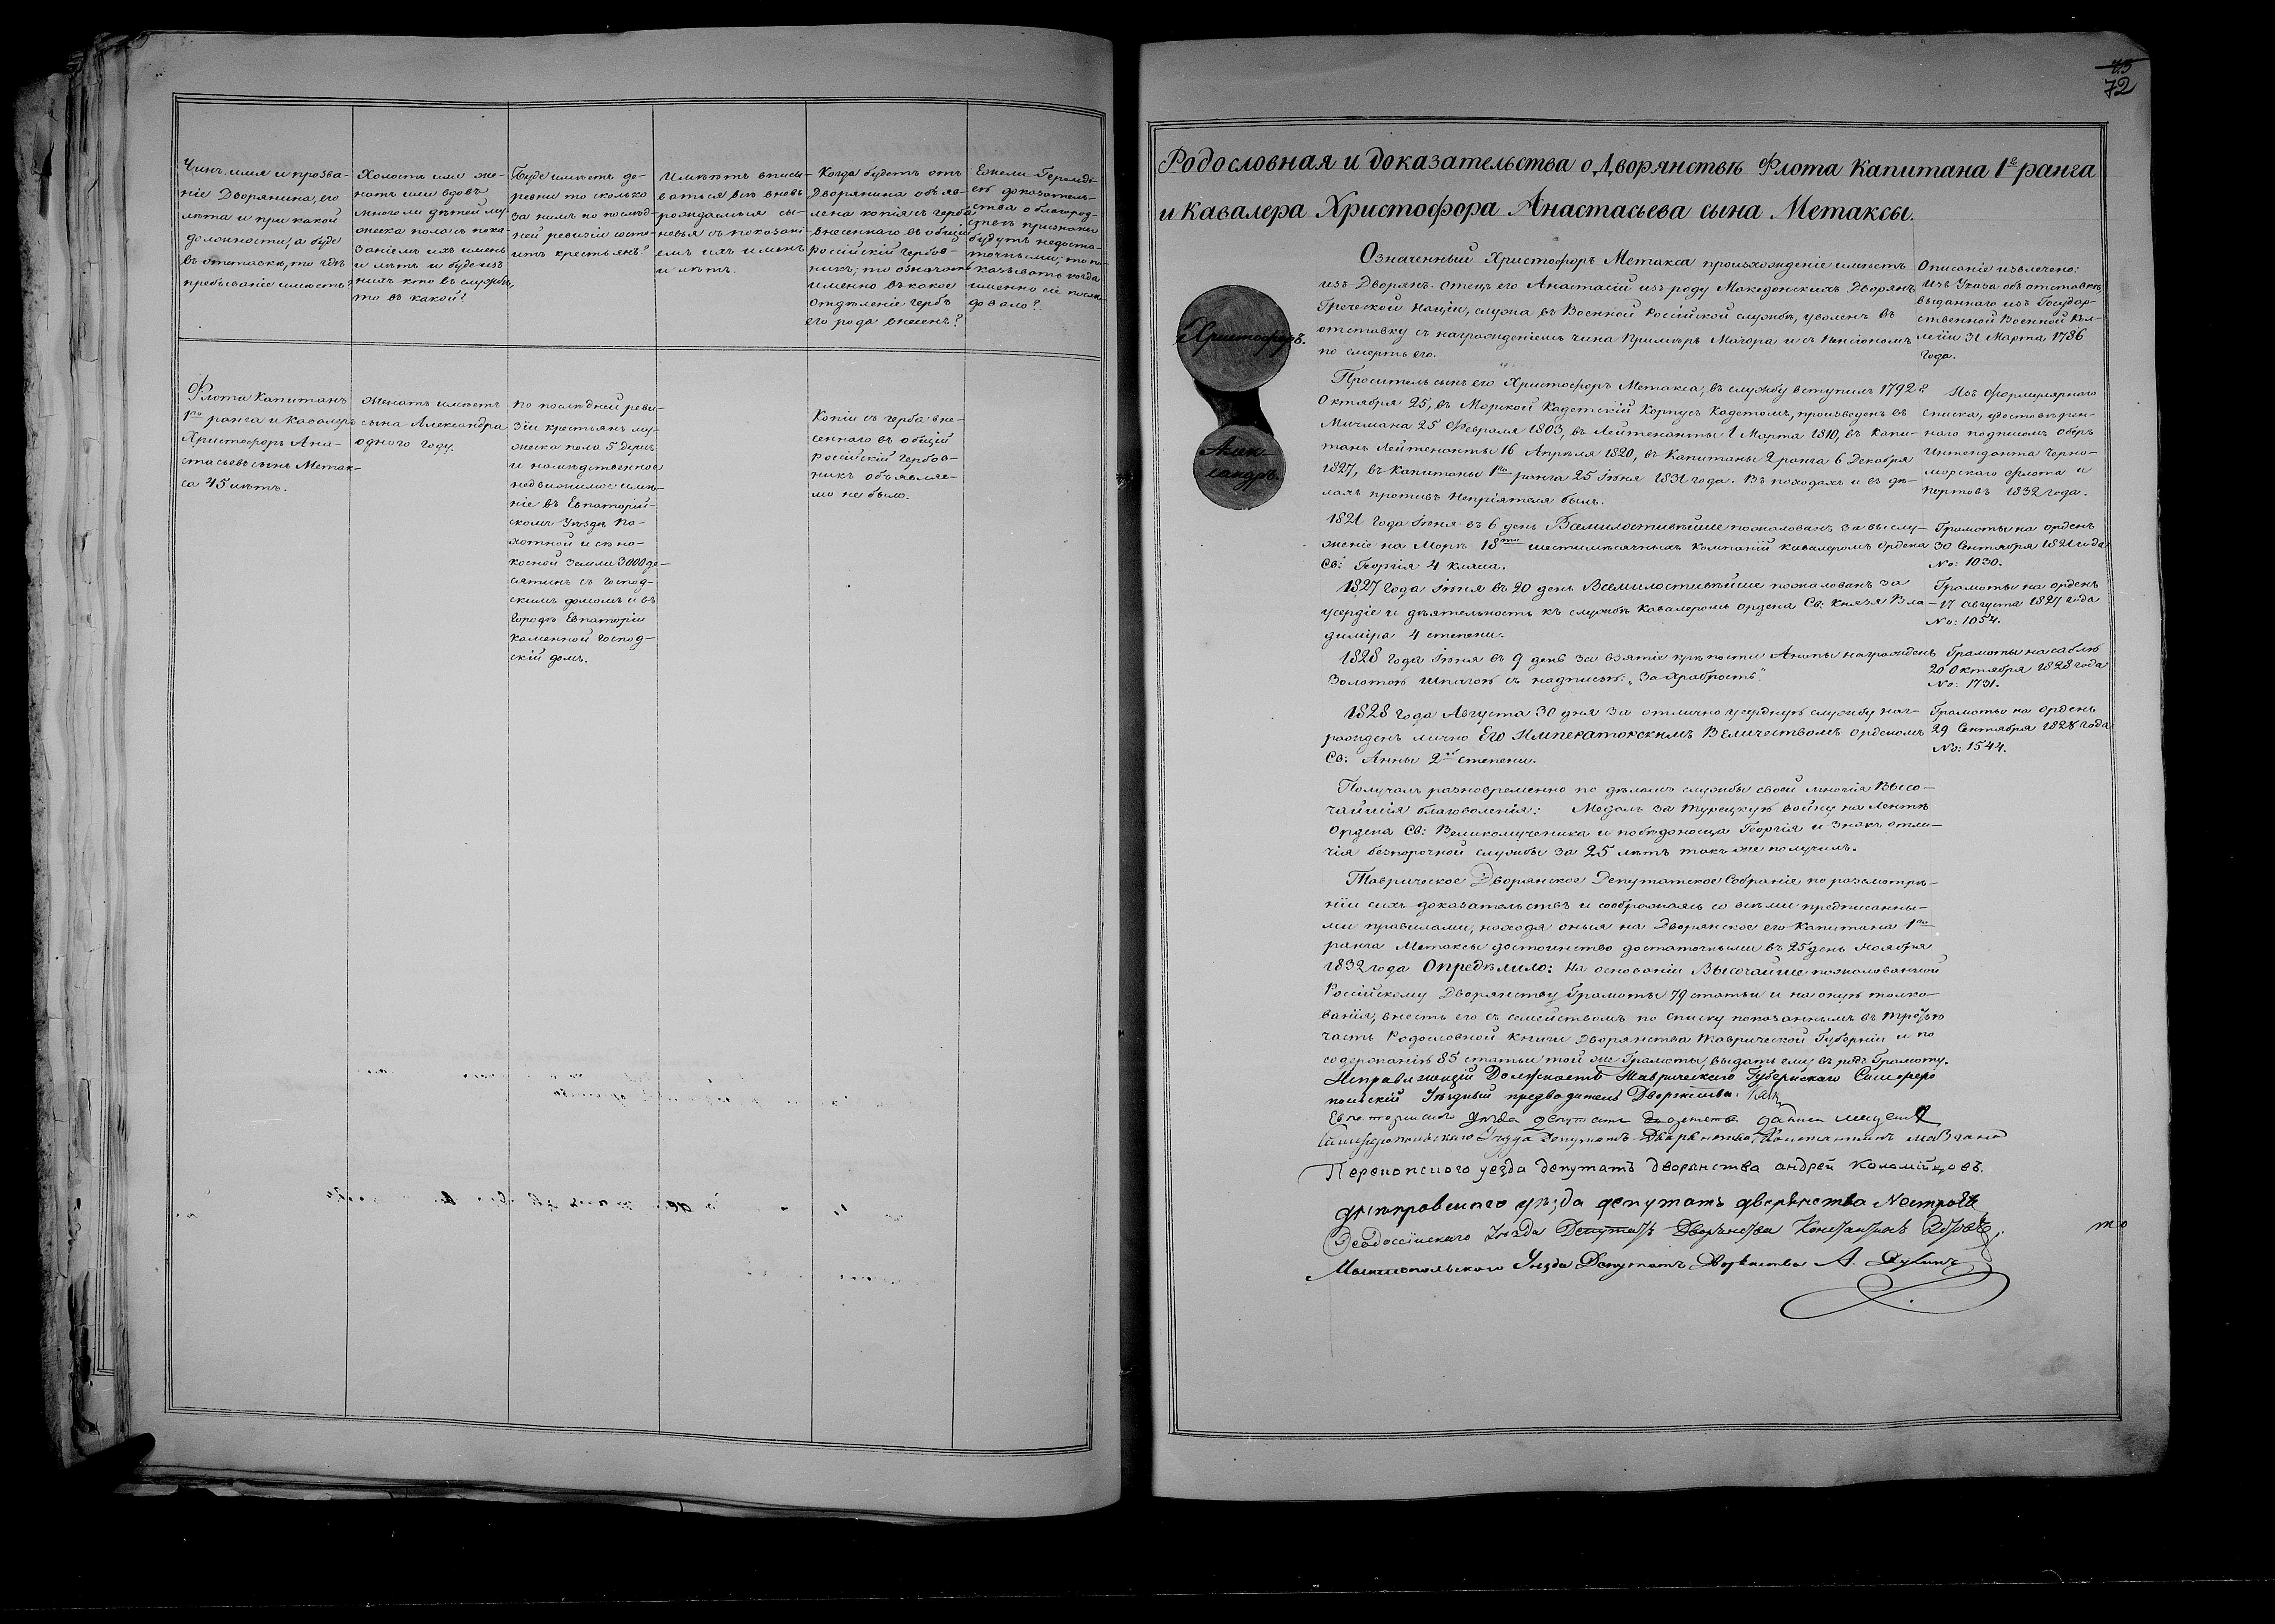 Чинъ имя и прозва-
ніе Дворянина, его
лѣта и при какой
должности, а буде
въ отставкѣ, то гдѣ
пребываніе имѣетъ?
Холостъ или же-
натъ или вдовъ
много ли дѣтей му-
жеска пола съ пока-
заніемъ ихъ именъ
и лѣтъ и буде изъ
нихъ кто въ службѣ,
то въ какой?
Буде имѣетъ де-
ревни то сколько
за нимъ по послѣд-
ней ревизіи состо-
итъ крестьянъ?
Имѣютъ вписы-
ваться всѣ вновь
рождаемыя сы-
новья съ показані-
емъ ихъ именъ
и лѣтъ.
Когда будетъ отъ
Дворянина объяв-
лена копія съ герба
внесеннаго въ общій
Россійскій Гербов-
никъ; то означать
именно въ какое
Отдѣленіе гербъ
его рода внесенъ?
Ежели Герольді-
ею доказатель-
ства о благород-
ствѣ признаны
будутъ недоста-
точными; то по-
казывать когда
именно сіе послѣ-
довало?
Флота Капитанъ
1го ранга и Кавалеръ
Христофоръ Ана-
стасьевъ сынъ Метак-
са 45 лѣтъ.
Женатъ имѣетъ
сына Александра
одного году.
По послѣдней реви-
зіи крестьянъ му-
жеска пола 5 душъ
и наслѣдственное
недвижимое имѣ-
ніе въ Евпаторій-
скомъ Уѣздѣ па-
хотной и сѣно-
косной земли 3000 де-
сятинъ съ Господ-
скимъ домомъ и въ
Городѣ Евпаторіи
каменной Господ-
скій домъ.
Копіи съ герба вне-
сеннаго въ общій
Россійскій Гербов-
никъ объявляе-
мо не было.
72
Родословная и доказательства о Дворянствѣ Флота Капитана 1го ранга
и Кавалера Христофора Анастасьева сына Метаксы.
Христофоръ.
Алек-
сандръ.
Означенный Христофоръ Метакса происхожденіе имѣетъ
изъ Дворянъ. Отецъ его Анастасій изъ роду Македонскихъ Дворянъ
Греческой Націи, служа въ Военной Россійской службѣ, уволенъ въ
отставку съ награжденіемъ чина Примьеръ Маіора и съ пенсіономъ
по смерть его.
Описаніе извлечено:
Изъ Указа объ отставкѣ
выданнаго изъ Государ-
ственной Военной Кол-
легіи 31 Марта 1786
года.
Проситель сынъ его Христофоръ Метакса, въ службу вступилъ 1792 г.
Октября 25, въ Морской Кадетскій Корпусъ Кадетомъ, произведенъ въ
Мичмана 25 Февраля 1803, въ Лейтенанты 1 Марта 1810, въ Капи-
танъ Лейтенанты 16 Апрѣля 1820, въ Капитаны 2 ранга 6 Декабря
1827, въ Капитаны 1го ранга 25 Іюня 1831 года. Въ походахъ и въ дѣ-
лахъ противъ Непріятеля былъ.
Изъ Формулярнаго
списка, удостовѣрен-
наго подписомъ Оберъ
Интенданта Черно-
морскаго флота и
портовъ 1832 года.
1821 Года Іюня въ 6 день Всемилостивѣйше пожалованъ за выслу-
женіе на Морѣ 18ти шестимѣсячныхъ компаній кавалеромъ Ордена
Св: Георгія 4 класа.
Грамоты на орденъ
30 Сентября 1821 года
No: 1030.
1827 Года Іюня въ 20 день Всемилостивѣйше пожалованъ за
усердіе и дѣятельность къ службѣ Кавалеромъ Ордена Св: Князя Вла-
диміра 4 степени.
Грамоты на орденъ
17 Августа 1827 года
No: 1054.
1828 Года Іюня въ 9 день за взятіе крѣпости Анапы награжденъ
Золотою шпагою съ надписью: „За храбрость“
Грамоты на саблю
20 Октября 1828 года
No: 1731.
1828 Года Августа 30 дня за отлично усердную службу наг-
ражденъ лично Его Императорскимъ Величествомъ орденомъ
Св: Анны 2й степени.
Грамоты на орденъ
29 Сентября 1828 года
No: 1544.
Получалъ разновременно по дѣламъ службы своей многія Высо-
чайшія благоволенія: Медаль за Турецкую войну на лентѣ
Ордена Св: Великомученика и побѣдоносца Георгія и Знакъ отли-
чія безпорочной службы за 25 лѣтъ такъ же получилъ.
Таврическое Дворянское Депутатское Собраніе по разсмотрѣ-
ніи сихъ доказательствъ и соображаясь со всѣми предписанны-
ми правилами, находя оныя на Дворянское его Капитана 1го
ранга Метаксы достоинство достаточными въ 25 день Ноября
1832 года Опредѣлило: На основаніи Высочайше пожалованной
Россійскому Дворянству Грамоты 79 статьи и на оную толко-
ванія, внесть его съ семействомъ по списку показаннымъ въ третью
часть Родословной Книги Дворянства Таврической Губерніи и по
содержанію 85 статьи той же Грамоты, выдать ему въ родъ Грамоту.
Исправляющій Должность Таврическаго Губернскаго Симферо
польскій Уѣздный предводитель Дворянства
Уѣзда депутатъ
Симферопольскаго Уѣзда Депутатъ Дворянства Константинъ
Перекопского уезда депутатъ дворянства андрей Коломійцовъ.
Днѣпровскаго уѣзда депутатъ дворянства
Ѳеодосійскаго Уѣзда Депутатъ Дворянства Константинъ
Мелитопольскаго Уѣзда Депутатъ Дворянства А.
то